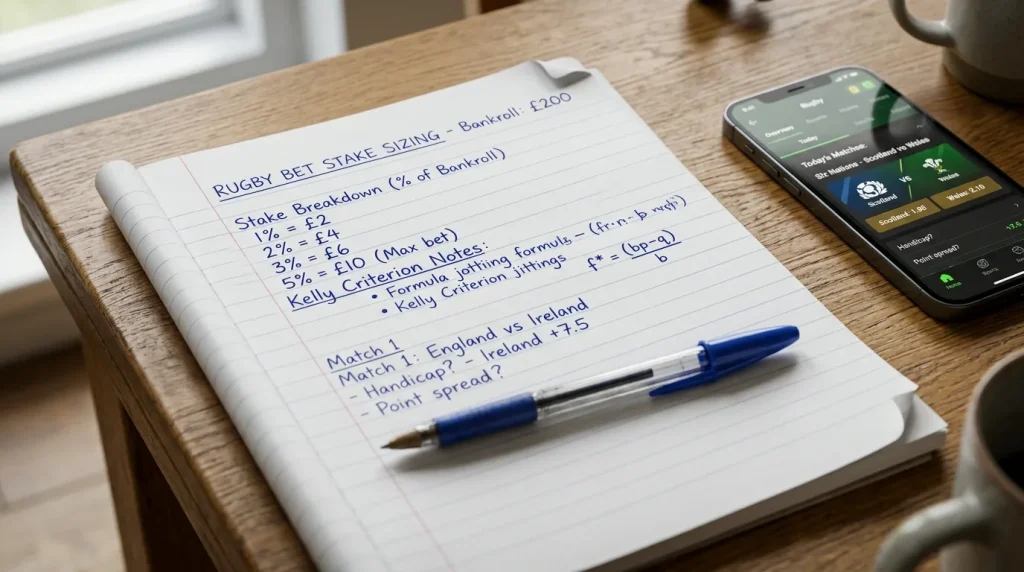 RUGBY BET STAKE SIZING - Bankroll: £200
Stake Breakdown (% of Bankroll)
1% = £2
2% = £4
3% = £6
5% = £10 (Max bet)
Kelly Criterion Notes:
• Formula jotting formula -
• Kelly Criterion jittings
f* = (bp-q)
b
Match 1
Match 1: England vs Ireland
- Handicap? - Ireland +7.5
- Point spread?
Rugby
Overview
Today
Today's Matches:
Six Nations - Scotland vs Wales
VS
Scotland
Wales
Scotland 1.90
Wales 2.10
Handicap?
Point spread?
Home